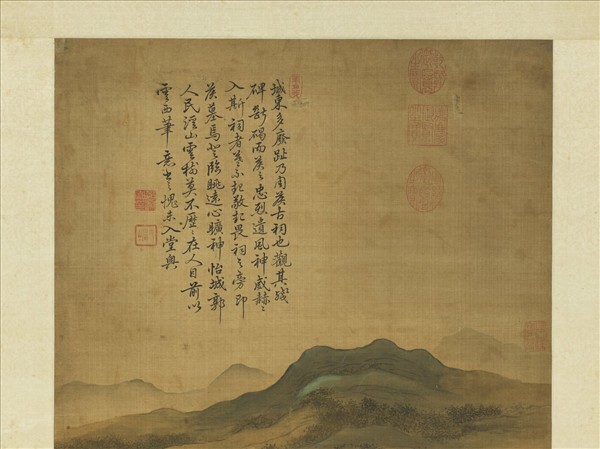 城東多廢趾乃周侯古祠也觀其殘
碑斷碣而侯之忠烈遺風神威赫赫
入斯祠者莫不起敬起畏祠之旁即
侯墓焉登臨眺遠心曠神怡城郭
人民溪山雲樹莫不歷歷在人目前以
雲西筆意書之愧未入堂奧